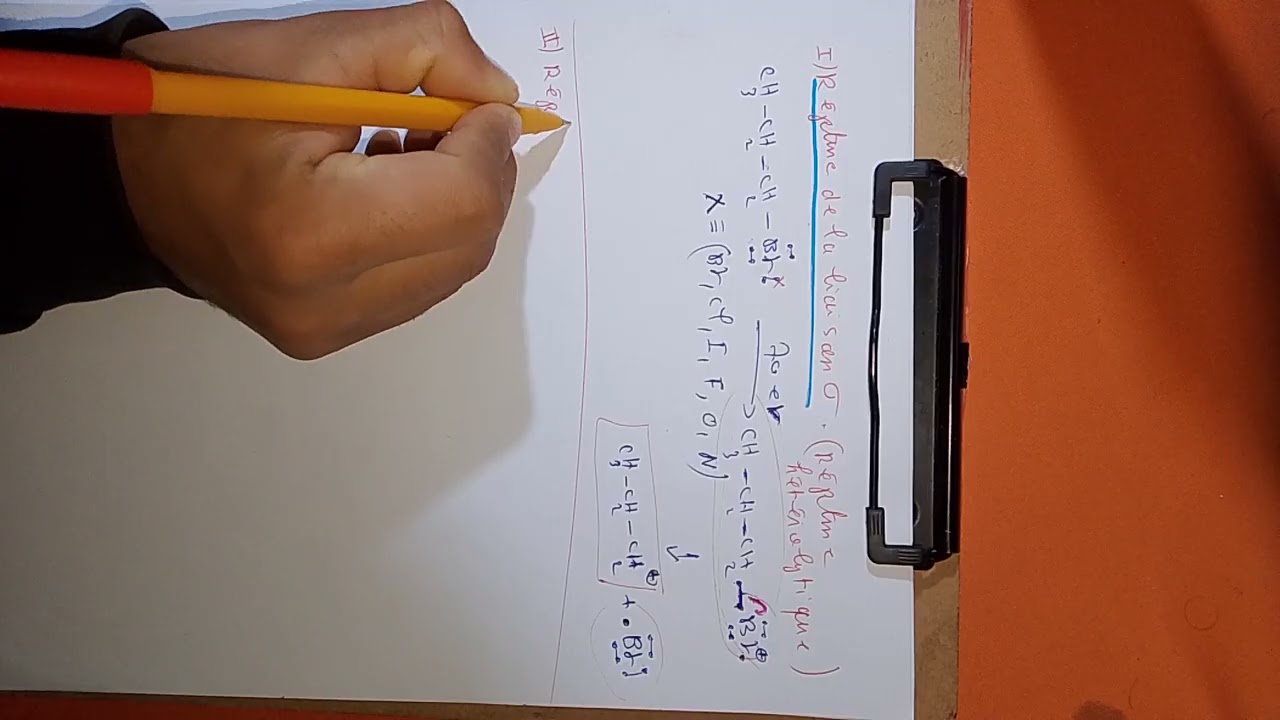 I) Rupture de la liaison σ. (Rupture hétérolytique)
70 eV
CH₃-CH₂-CH₂-Br → CH₃-CH₂-CH₂-Br⊕
X ≡ (Br, Cl, I, F, O, N)
↓
CH₃-CH₂-CH₂⊕ + •Br
II) Rup